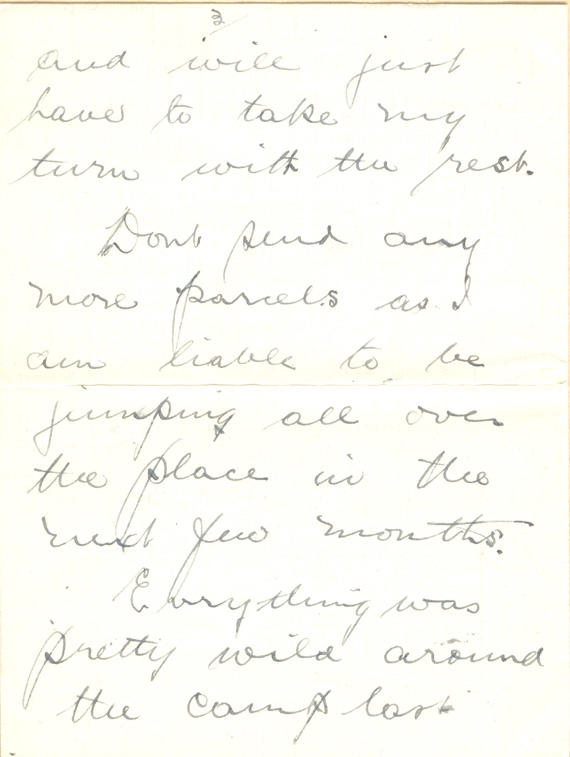 3
and will just
have to take my
turn with the rest.
Dont send any
more parcels as I
am liable to be
jumping all over
the place in the
next few months.
Everything was
pretty wild around
the camp last